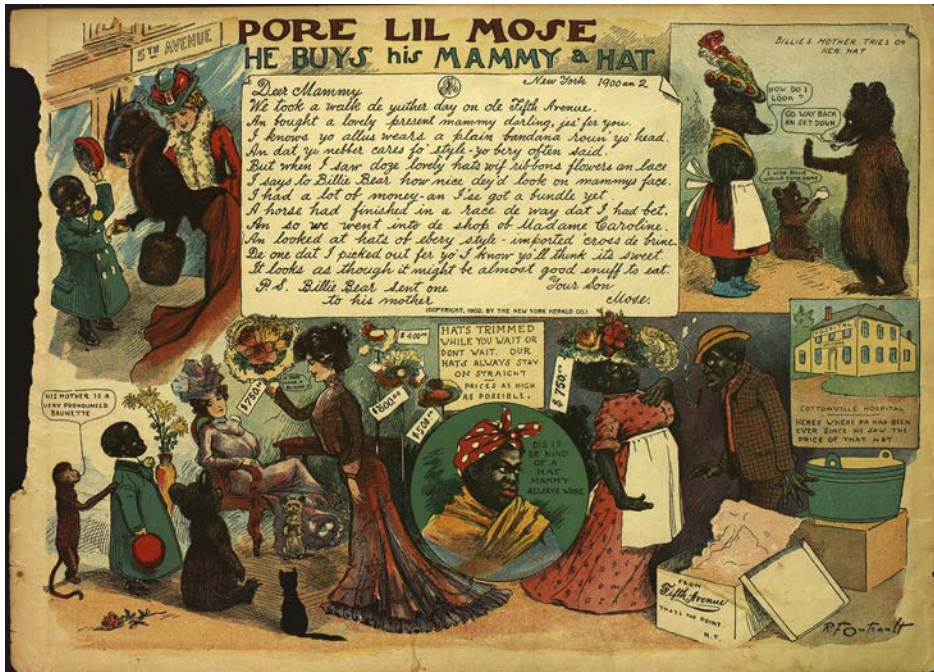 5TH AVENUE
PORE LIL MOSE
HE BUYS his MAMMY a HAT
New York 1900 an 2
Dear Mammy
We took a walk de yuther day on ole Fifth Avenue.
An bought a lovely present mammy darling, jes' fer you.
I knows yo allus wears a plain bandana roun' yo' head.
An dat yo nebber cares fo' style - yo bery often said.
But when I saw doze lovely hats wif ribbons flowers an lace
I says to Billie Bear how nice dey'd look on mammys face.
I had a lot of money - an I'se got a bundle yet
A horse had finished in a race de way dat I had bet.
An so we went into de shop of Madame Caroline.
An looked at hats of ebery style - imported 'cross de brine.
De one dat I picked out fer yo' I know yo'll think its sweet.
It looks as though it might be almost good enuff to eat.
P.S. Billie Bear sent one
to his mother
Your Son
Mose.
(COPYRIGHT, 1902, BY THE NEW YORK HERALD CO.)
BILLIE'S MOTHER TRIES ON
HER HAT
HOW DO I
LOOK ?
GO WAY BACK
AN SET DOWN
I WISH BILLIE
WOULD COME HOME
HIS MOTHER IS A
VERY PRONOUNCED
BRUNETTE
$750.00
IS YOUR
MAMA A
BLOND?
$400.00
$600.00
$500.00
HATS TRIMMED
WHILE YOU WAIT OR
DONT WAIT. OUR
HATS ALWAYS STAY
ON STRAIGHT
PRICES AS HIGH
AS POSSIBLE.
DIS IS
DE KIND
OF A
HAT
MAMMY
ALWAYS WORE
$750.00
HOSPITAL
COTTONVILLE HOSPITAL
HERES WHERE PA HAS BEEN
EVER SINCE HE SAW THE
PRICE OF THAT HAT
FROM
Fifth Avenue
THATS THE POINT.
N.Y.
R.F. Outcault